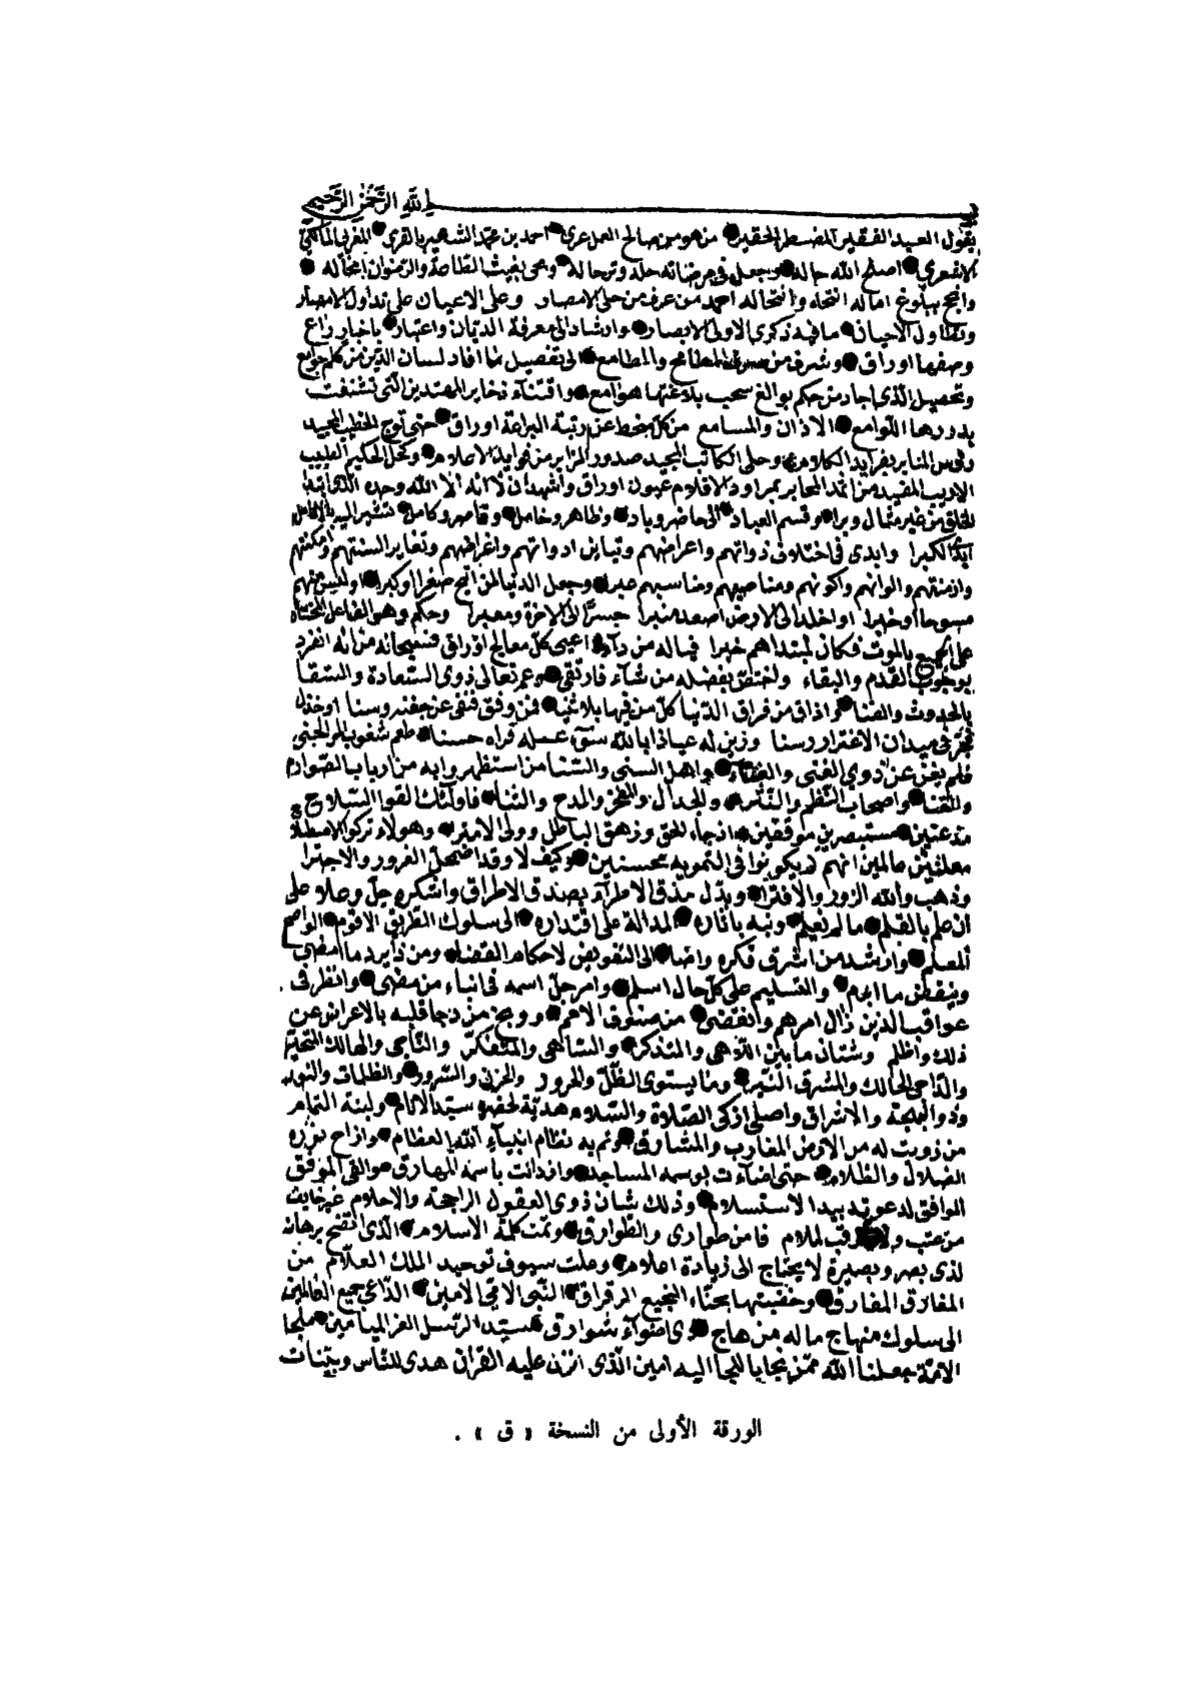 بسم الله الرحمن الرحيم
يقول العبد الفقير المضطر الحقير من هو من صالح العمل عري احمد بن محمد الشهير بالمقري المغربي المالكي
الاشعري اصلح الله حاله وجعل في مرضاته حله وترحاله ومحى بغيث الطاعة والرضوان امحاله
وانجح ببلوغ اماله انتحاه وانتحاله احمد من عرف من حلى الامصار وعلى الاعيان على تداول الاعصار
وتطاول الاحيان ما فيه ذكرى لاولى الابصار وارشاد الى معرفة الديان واعتبار باخبار راع
وصفها اوراق وشرف من المطامح والمطامع الى تفصيل ما افاد لسان الدين من كلم جوامع
وتحصيل الذي اجاد من حكم بوالغ سحب بلاغتها هوامع واقتناء ذخاير المهتدين التي تشنفت
بدررها اللوامع الاذان والمسامع من كل منحط عن رتبة البراعة اوراق حتى توج الخطيب المجيد
رؤس المنابر بفرايد الكلام وحلى الكاتب المجيد صدور المزابر من فوايد الاعلام وكحل الحكيم الطبيب
الاديب المفيد من اثمد المحابر بمراود الاقلام عيون اوراق واشهد ان لا اله الا الله وحده الذي انشا
الخلق من غير مثال وبرا وقسم العباد الى حاضر وباد وظاهر وخامل وقاصر وكامل تشير اليه بالانامل
ايدي الكبرا وابدى في اختلاف ذواتهم واعراضهم وتباين ادواتهم واغراضهم وتغاير السنتهم وامكنتهم
وازمنتهم والوانهم واكوانهم ومناصبهم ومناسبهم عبرا وجعل الدنيا لمن اتيح صغرا او كبرا او لبس منهم
مسوحا او حبرا او اخلد الى الارض او صعد منبرا جسرا الى الاخرة ومعبرا وحكم وهو الفاعل المختار
على الجميع بالموت فكان لمبتداهم خبرا فياله من داء اعيى كل معالج اوراق فسبحانه من اله انفرد
بوجوب القدم والبقاء واختص بفضله من شاء فارتقى وعم تعالى ذوي السعادة والشقا
بالحدوث والفنا واذاق من فراق الدنيا كل من فيها بلا ثنيا فمن وفق فنفى عن جفنه وسنا او خذل
فجر في ميدان الاغترار رسنا وزين له عياذا بالله سوء عمله فراه حسنا طعم شعوب المر الجنى
فلم يغن عن ذوي الغنى والغناء واهل السنى والسنا من استظهروا به من ارباب الصوارم
والقنا واصحاب النظم والنثر والجدال والفخر والمدح والثنا فاولئك القوا السلاح
مذعنين مستبصرين موقنين اذ جاء الحق وزهق الباطل وولى الامترا وهولاء تركوا الاصطلاح
معلنين عالمين انهم لم يكونوا في التمويه محسنين وكيف لا وقد اضمحل الغرور والاجترا
وذهب والله الزور والافترا وبدل مذق الاطراء بصدق الاطراق واشكره جل وعلا على
ان علم بالقلم ما لم نعلم ونبه باثاره الدالة على اقتداره الى سلوك الطريق الاقوم الواضح
المعلم وارشد من اشرق فكره واضا الى التفويض لاحكام القضا ومن ذا يرد ما امضى
وينقض ما ابرم والتسليم على كل حال اسلم وامر جل اسمه في انباء من مضى وانظر في
عواقب الذين زال امرهم وانقضى من صنوف الامم ووبخ من دجا قلبه بالاعراض عن
ذلك واظلم وشتان ما بين اللاهي والمتذكر والساهي والمتفكر والناجي والهالك المتحير
والداجي الحالك والمشرق النير وما يستوي الظل والحرور والحزن والسرور والظلمات والنور
وذو البهجة والاشراق واصلي ازكى الصلاة والسلام هدية لحضرة سيد الانام ولبنة التمام
من زويت له من الارض المغارب والمشارق وتم به نظام انبياء الله العظام وازاح بنوره
الضلال والظلام حتى اضاءت بوسمه المساجد وازدانت باسمه المهارق هو القى الموفق
الموافق لدعوته بيد الاستسلام وذلك شان ذوي العقول الراجحة والاحلام غير خايف
من عتب ولا مرتقب لملام فامن طوارى والطوارق وتمت كلمة الاسلام الذي اتضح برهانه
لذي بصر وبصيرة لا يحتاج الى زيادة اعلام وعلت سيوف توحيد الملك العلام من
المغارق المفارق وخضبتها بحناء النجيع الرقراق النبي الامي الامين الداعي جميع العالمين
الى سلوك منهاج ما له من هاج ذي اضواء شوارق سيد الرسل الغر الميامين ملجا
الامة جعلنا الله ممن نجا بالالتجا اليه امين الذي انزل عليه القران هدى للناس وبينات
الورقة الأولى من النسخة « ق » .